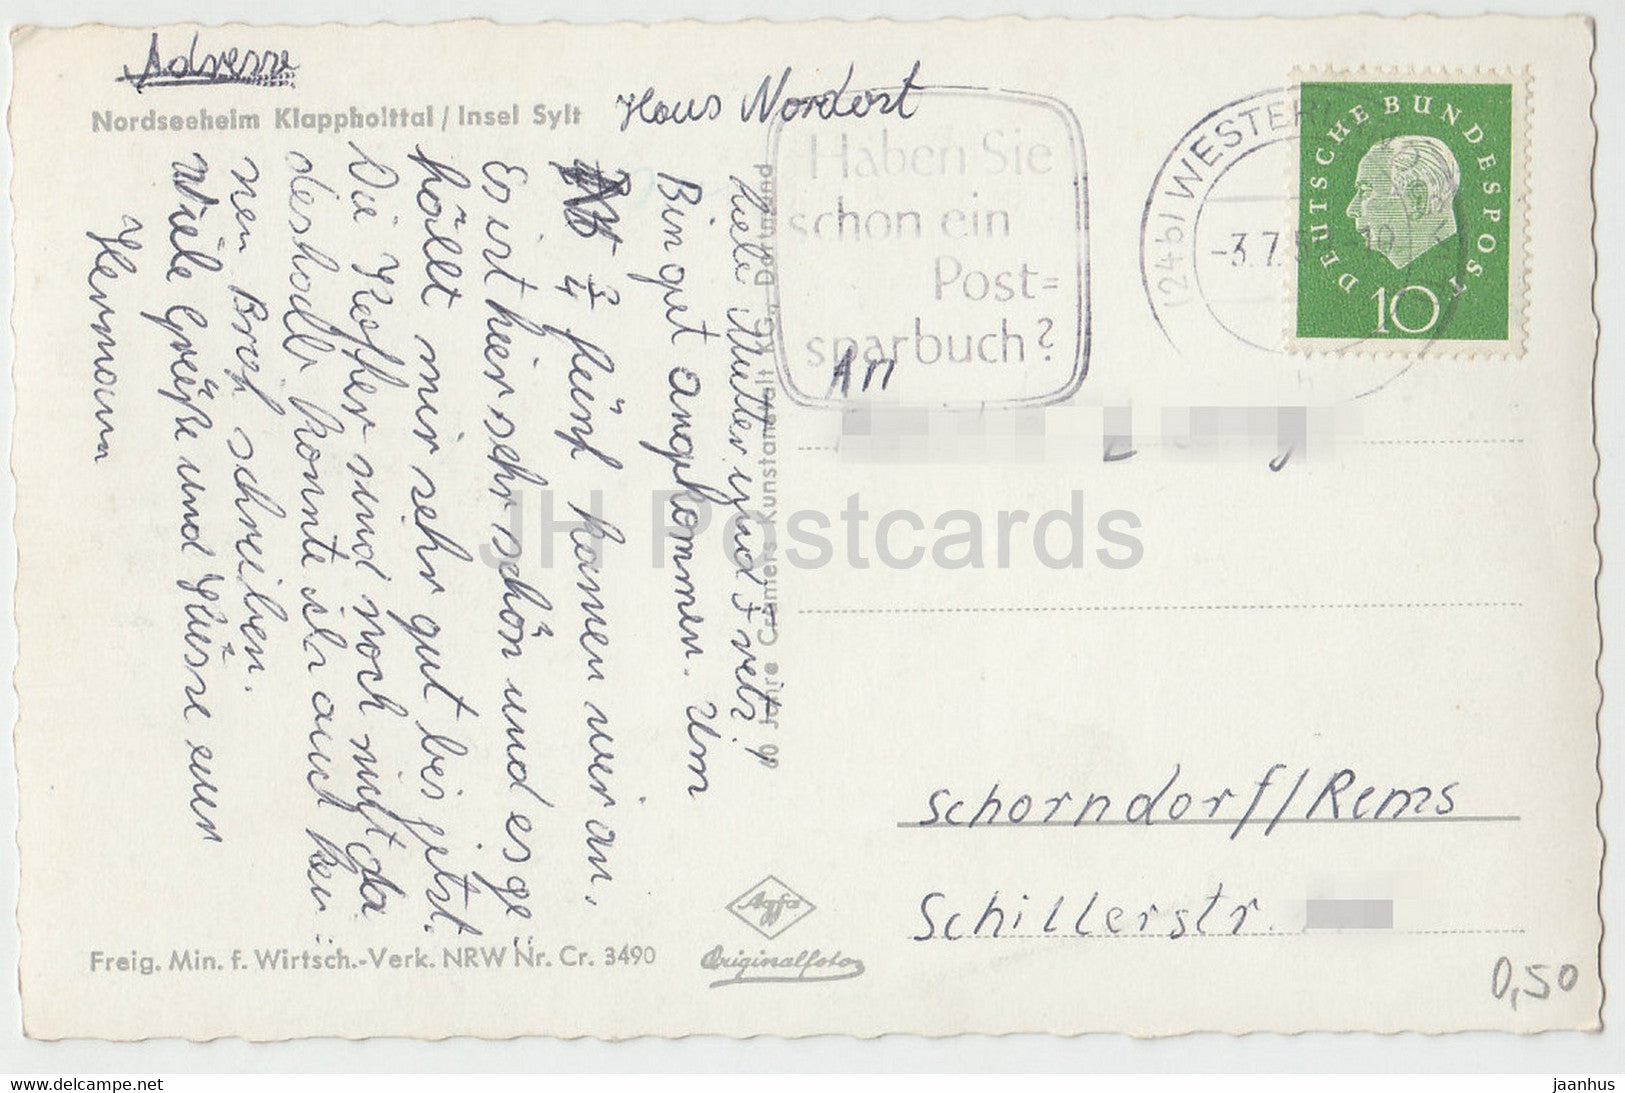 Adresse
Nordseeheim Klappholttal / Insel Sylt
Haus Nordost
Liebe Mutter und Freitz!
Bin gut angekommen. Um
3/4 fünf kamen wir an.
Es ist hier sehr schön und es ge
fällt mir sehr gut bis jetzt.
Die Koffer sind noch nicht da
deshalb konnte ich auch kei
nen Brief schreiben.
Viele Grüße und Küsse euer
Hermann
60 Jahre Cramers Kunstanstalt KG., Dortmund
Haben Sie
schon ein
Post=
sparbuch?
(24b) WESTERL
-3.7.5
DEUTSCHE BUNDESPOST
10
An
Schorndorf/Rems
Schillerstr.
Freig. Min. f. Wirtsch.-Verk. NRW Nr. Cr. 3490
Agfa
Originalfoto
0,50
JH Postcards
www.delcampe.net
jaanhus